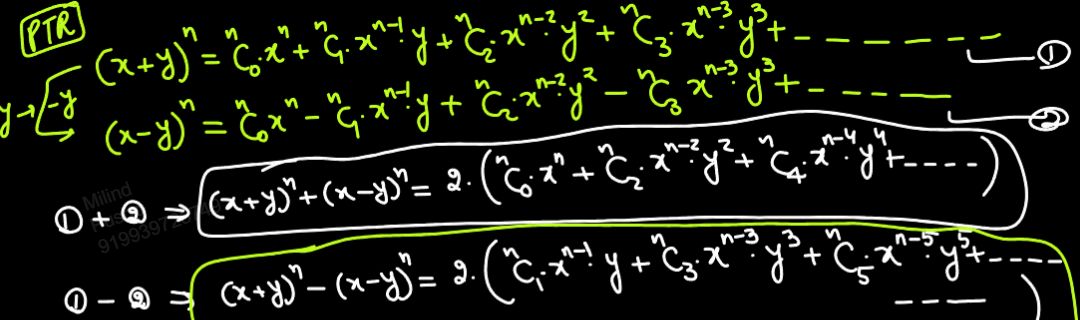 PTR
(x+y)ⁿ = ⁿC₀·xⁿ + ⁿC₁·xⁿ⁻¹·y + ⁿC₂·xⁿ⁻²·y² + ⁿC₃·xⁿ⁻³·y³ + - - - - - - - ①
y → -y
(x-y)ⁿ = ⁿC₀xⁿ - ⁿC₁·xⁿ⁻¹·y + ⁿC₂·xⁿ⁻²·y² - ⁿC₃xⁿ⁻³·y³ + - - - - - ②
① + ② ⇒ (x+y)ⁿ + (x-y)ⁿ = 2·(ⁿC₀·xⁿ + ⁿC₂·xⁿ⁻²·y² + ⁿC₄·xⁿ⁻⁴·y⁴ + - - - -)
Milind
① - ② ⇒ (x+y)ⁿ - (x-y)ⁿ = 2·(ⁿC₁·xⁿ⁻¹·y + ⁿC₃·xⁿ⁻³·y³ + ⁿC₅·xⁿ⁻⁵·y⁵ + - - - -
- - - - )